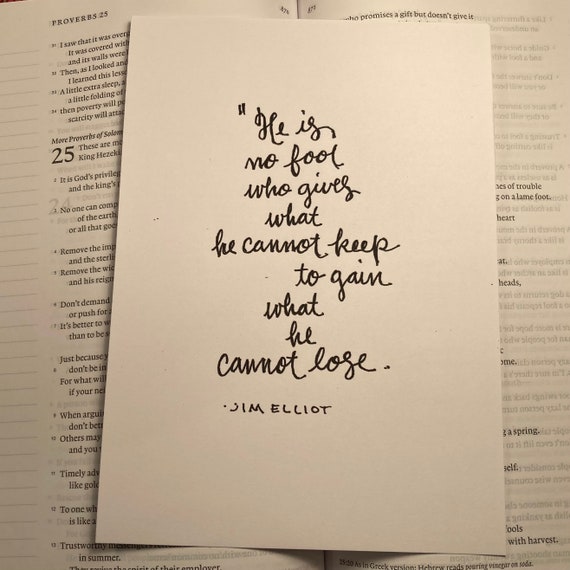 PROVERBS 25
474
475
31 I saw that it was overg
It was covered with
and its walls were
32 Then, as I looked and
I learned this less
33 A little extra sleep, a
a little folding of
34 then poverty will po
scarcity will attac
More Proverbs of Solom
25 These are mo
King Hezeki
2 It is God's privileg
and the king's
3 No one can comp
of the earth
or all that goe
4 Remove the imp
and the sterli
5 Remove the wic
and his reign
6 Don't demand
or push for
7 It's better to w
than to be s
Just because y
8 don't be in
For what will
if your ne
9 When arguin
don't betr
10 Others may
and you
11 Timely adv
like gold
12 To one wh
is like a
13 Trustworthy messengers
in summer.
They revive the spirit of their employer.
"He is
no fool
who gives
what
he cannot keep
to gain
what
he
cannot lose.
·JIM ELLIOT
who promises a gift but doesn't give it
nes of trouble
g on a lame foot.
heart
at.
heads,
ome.
g a spring.
self.
ools
with harvest.
25:20 As in Greek version; Hebrew reads pouring vinegar on soda.